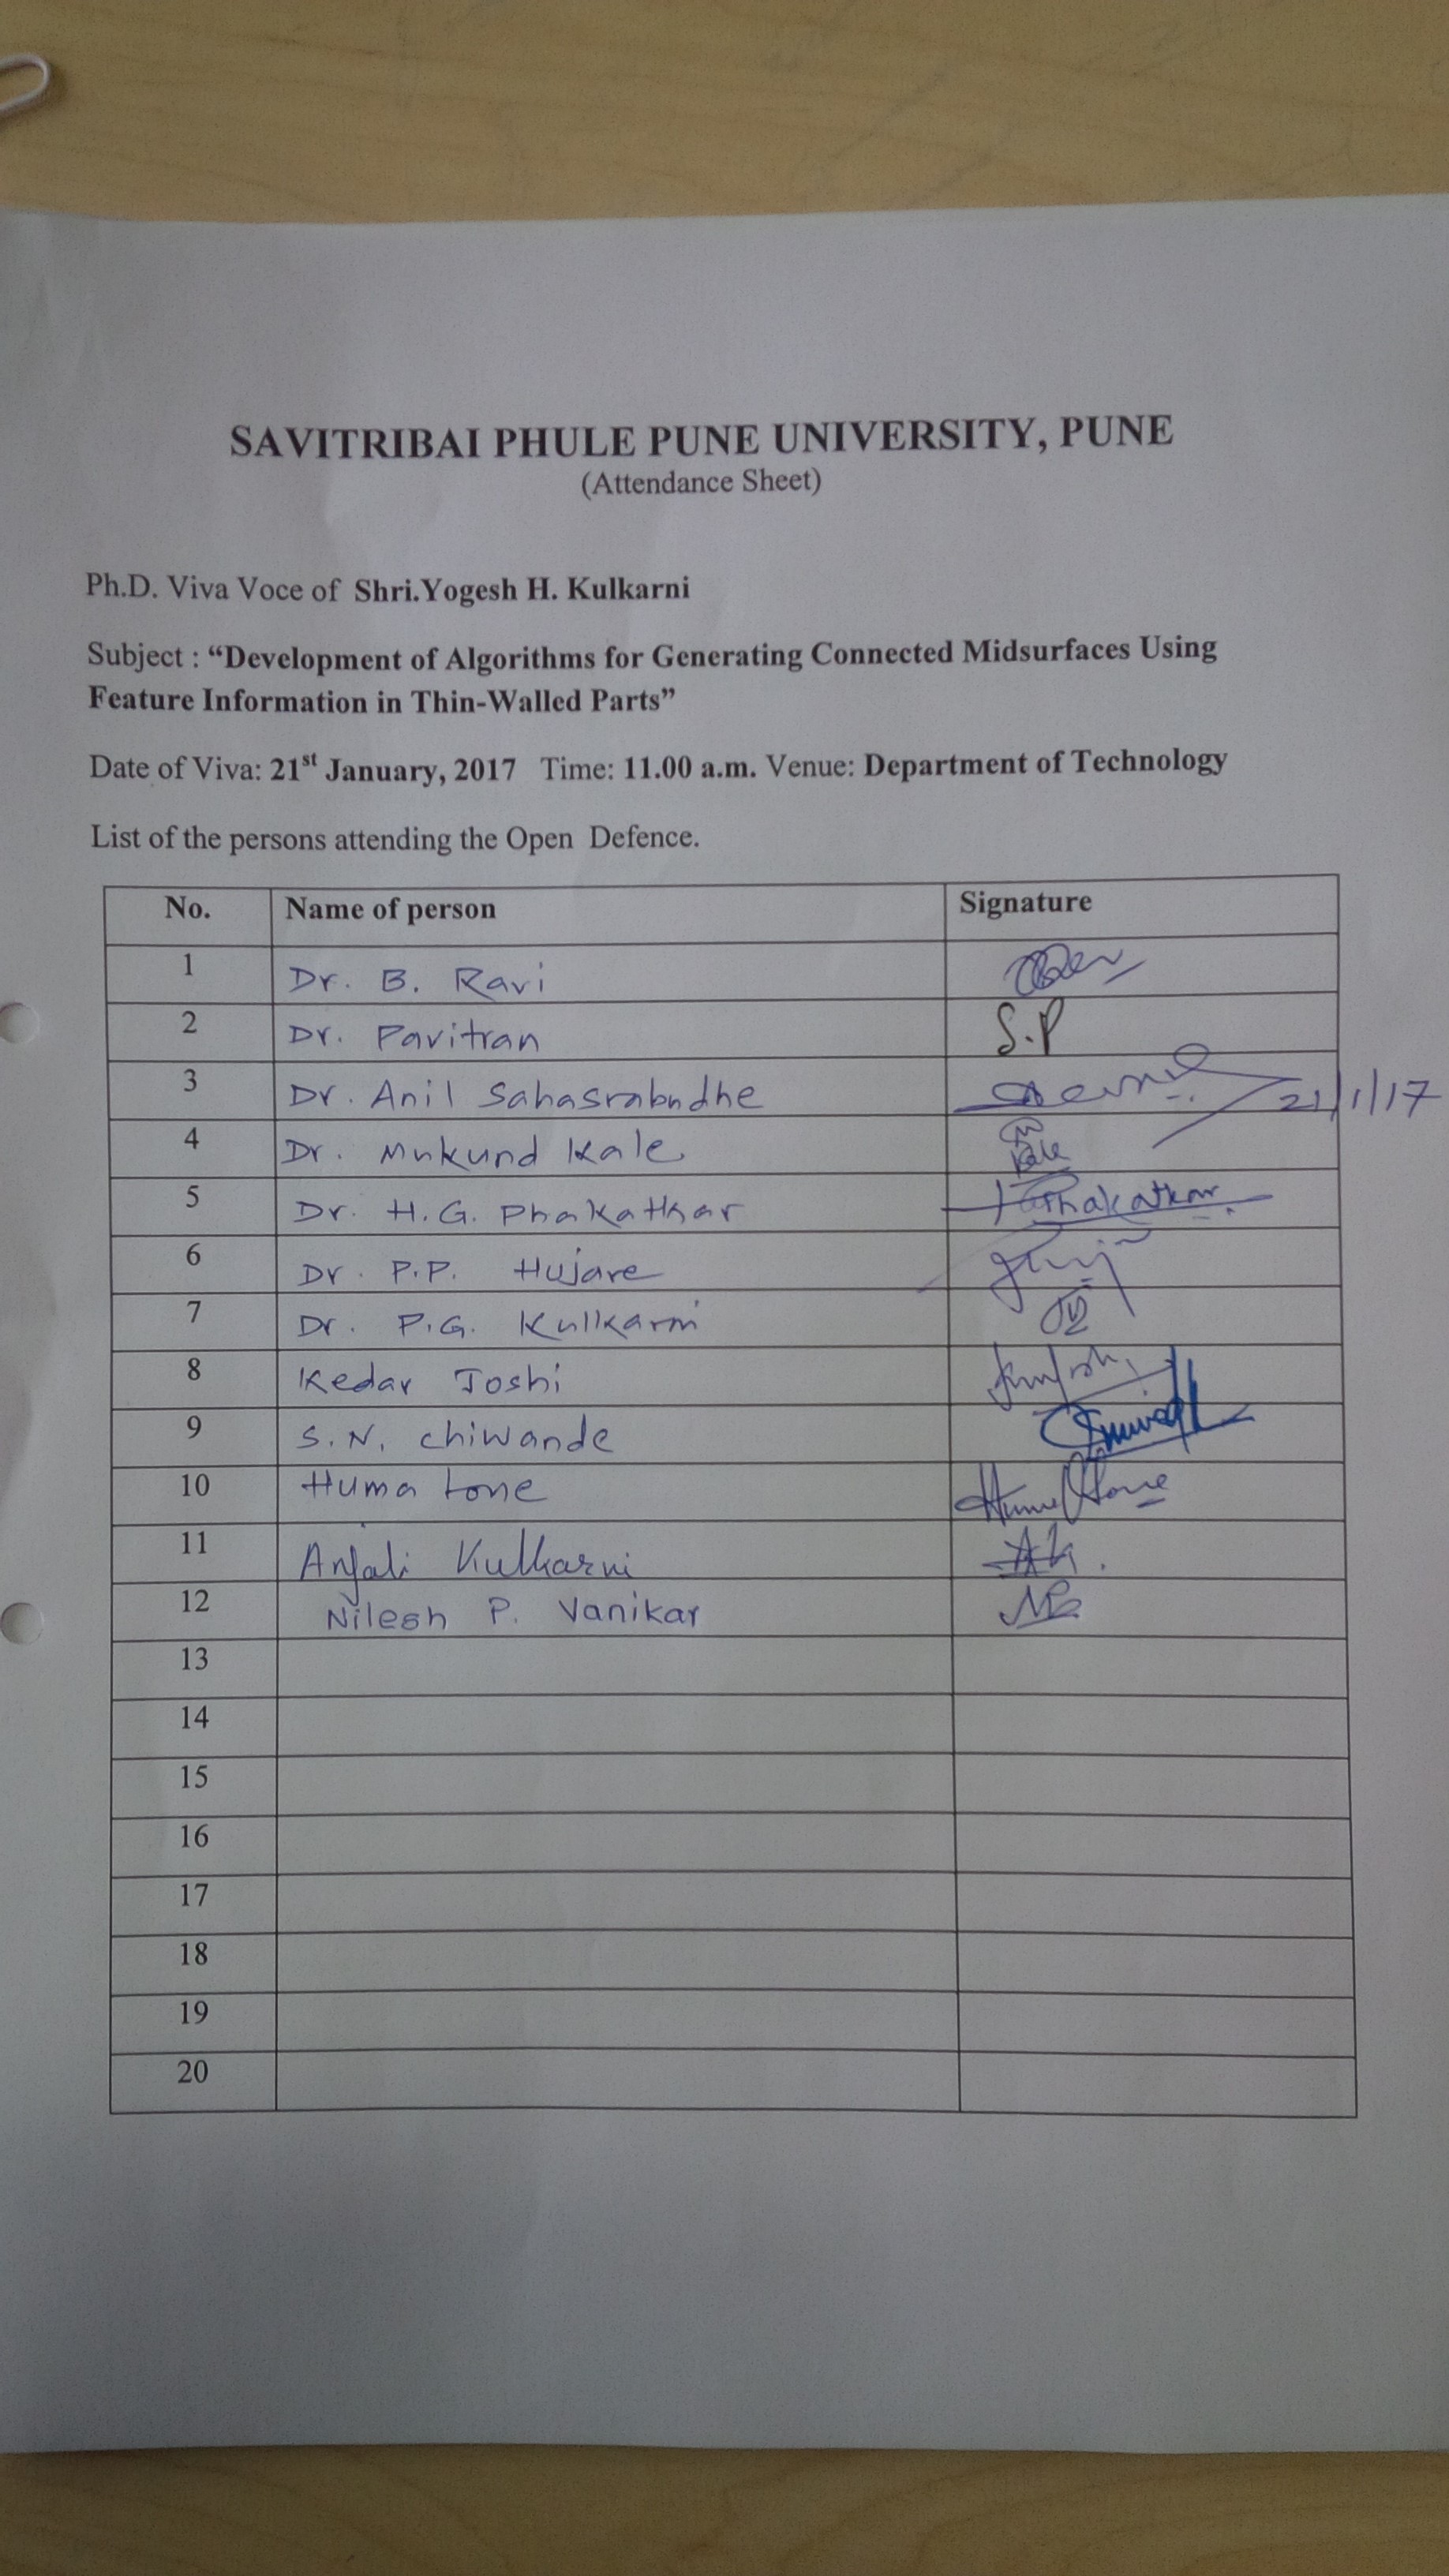 SAVITRIBAI PHULE PUNE UNIVERSITY, PUNE
(Attendance Sheet)
Ph.D. Viva Voce of Shri.Yogesh H. Kulkarni
Subject : “Development of Algorithms for Generating Connected Midsurfaces Using
Feature Information in Thin-Walled Parts”
Date of Viva: 21st January, 2017 Time: 11.00 a.m. Venue: Department of Technology
List of the persons attending the Open Defence.
No. Name of person Signature
1 Dr. B. Ravi
2 Dr. Pavitran S.P
3 Dr. Anil Sahasrabudhe 21/1/17
4 Dr. Mukund Kale Kale
5 Dr. H.G. Phakatkar Phakatkar
6 Dr. P.P. Hujare
7 Dr. P.G. Kulkarni
8 Kedar Joshi
9 S.N. Chiwande
10 Huma Lone Huma Lone
11 Anjali Kulkarni AK.
12 Nilesh P. Vanikar
13
14
15
16
17
18
19
20